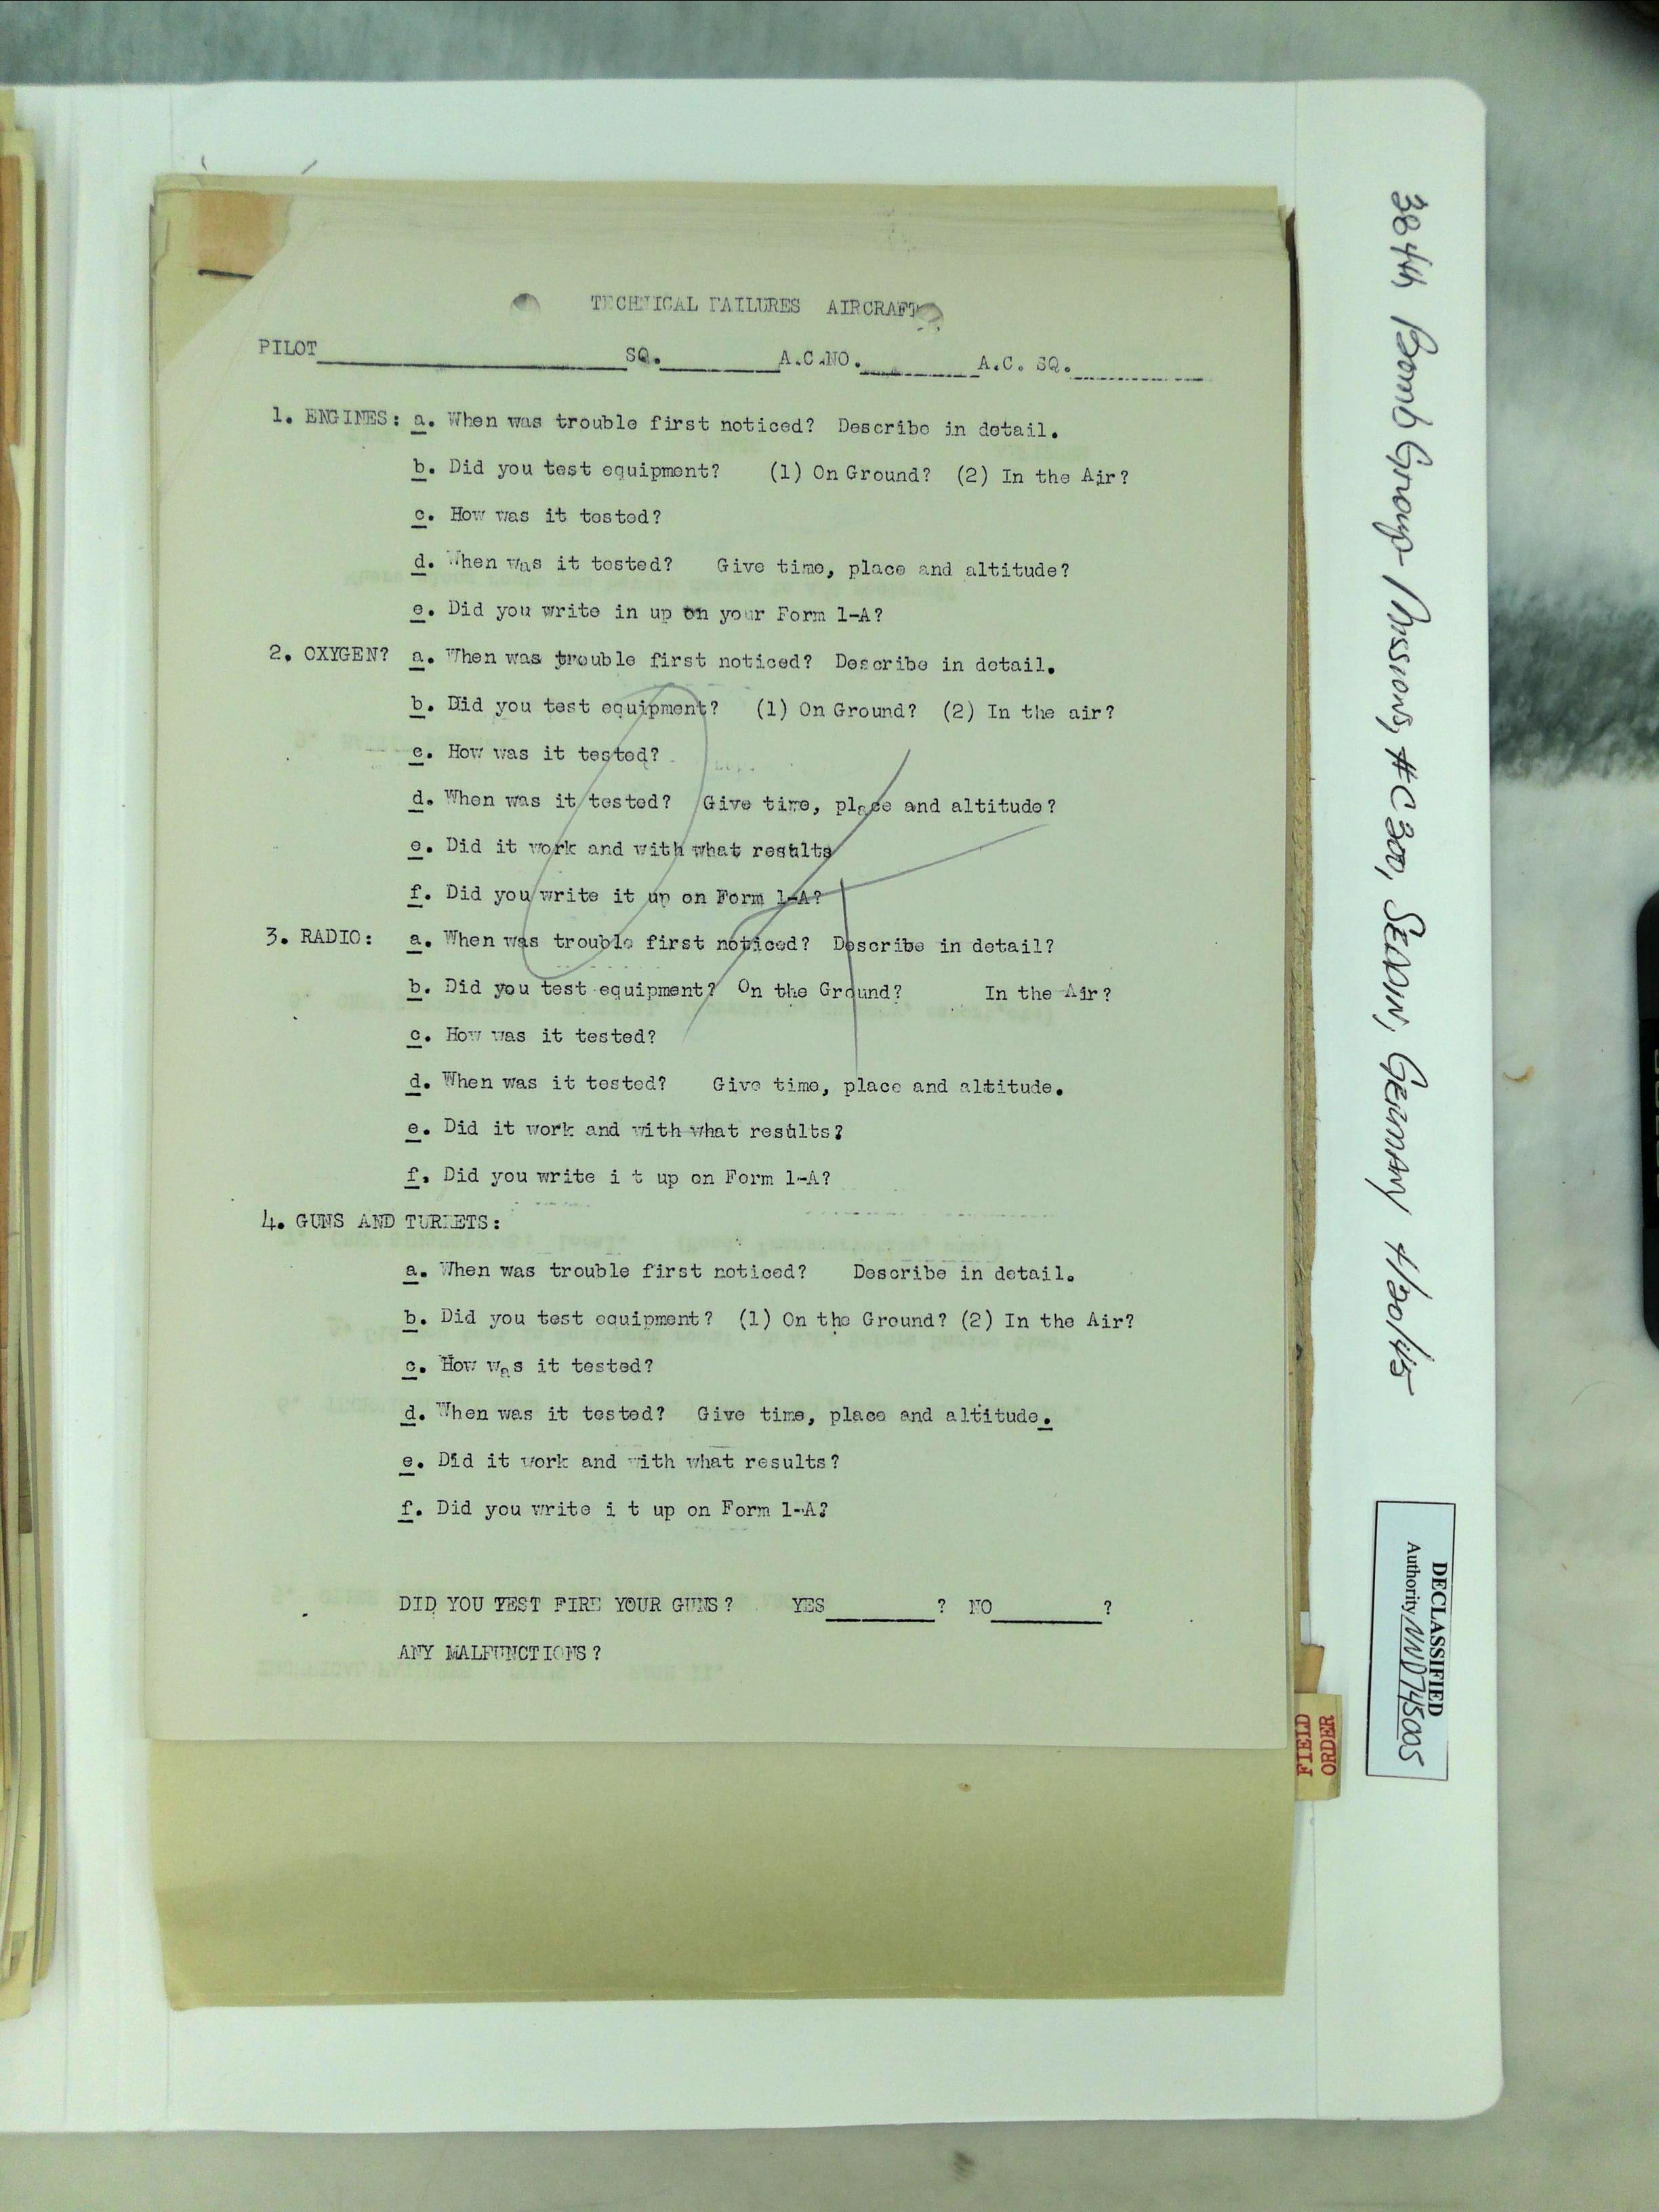 TECHNICAL FAILURES AIRCRAFT
PILOT SQ. A.C.NO. A.C. SQ.
1. ENGINES: a. When was trouble first noticed? Describe in detail.
b. Did you test equipment? (1) On Ground? (2) In the Air?
c. How was it tested?
d. When was it tested? Give time, place and altitude?
e. Did you write in up on your Form 1-A?
2. OXYGEN? a. When was trouble first noticed? Describe in detail.
b. Did you test equipment? (1) On Ground? (2) In the air?
c. How was it tested?
d. When was it tested? Give time, place and altitude?
e. Did it work and with what results
f. Did you write it up on Form 1-A?
3. RADIO: a. When was trouble first noticed? Describe in detail?
b. Did you test equipment? On the Ground? In the Air?
c. How was it tested?
d. When was it tested? Give time, place and altitude.
e. Did it work and with what results?
f. Did you write i t up on Form 1-A?
4. GUNS AND TURRETS:
a. When was trouble first noticed? Describe in detail.
b. Did you test equipment? (1) On the Ground? (2) In the Air?
c. How was it tested?
d. When was it tested? Give time, place and altitude.
e. Did it work and with what results?
f. Did you write i t up on Form 1-A?
DID YOU TEST FIRE YOUR GUNS? YES ? NO ?
ANY MALFUNCTIONS?
FIELD
ORDER
384th Bomb Group- Missions, #C300, SEDDIN, GERMANY 4/20/45
DECLASSIFIED
Authority NND745005